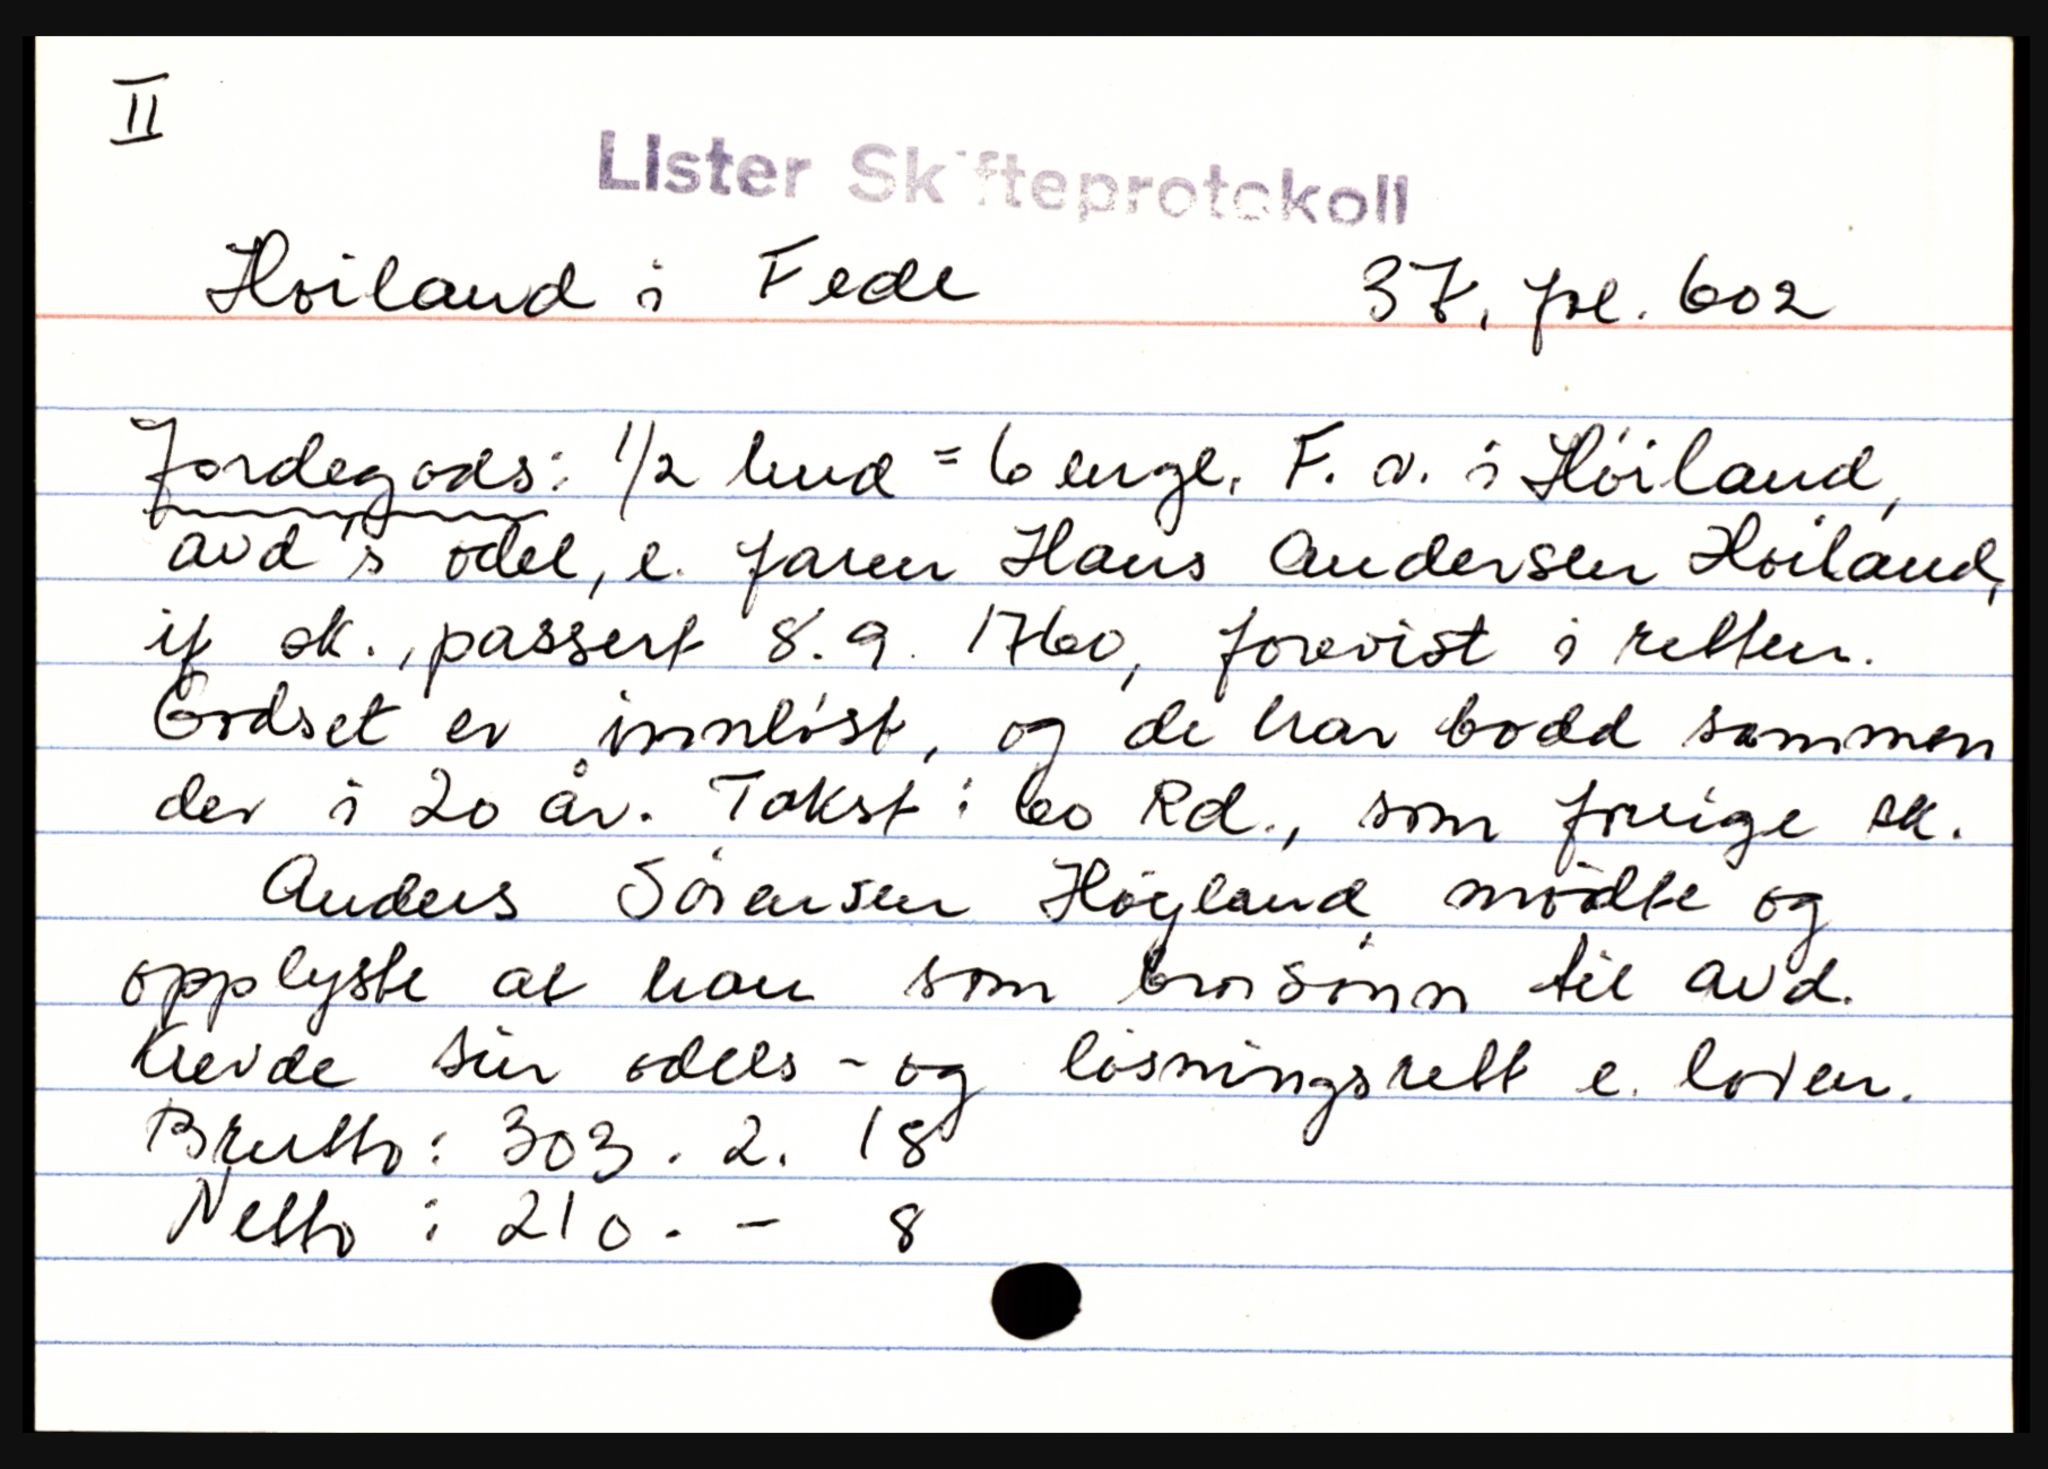 II
Lister Skifteprotokoll
Høiland i Fede 37, fol. 602
Jordegods: 1/2 hud = 6 enge. F. v. i Høiland,
avd's odel, e. faren Hans Andersen Høiland,
if sk., passert 8.9. 1760, forevist i retten.
Godset er innløst, og de har bodd sammen
der i 20 år. Takst: 60 Rd., som forrige sk.
Anders Sørensen Høyland mødte og
opplyste at han som brorsønn til avd.
krevde sin odels- og løsningsrett e. loven.
Brutto: 303. 2. 18
Netto: 210. - 8